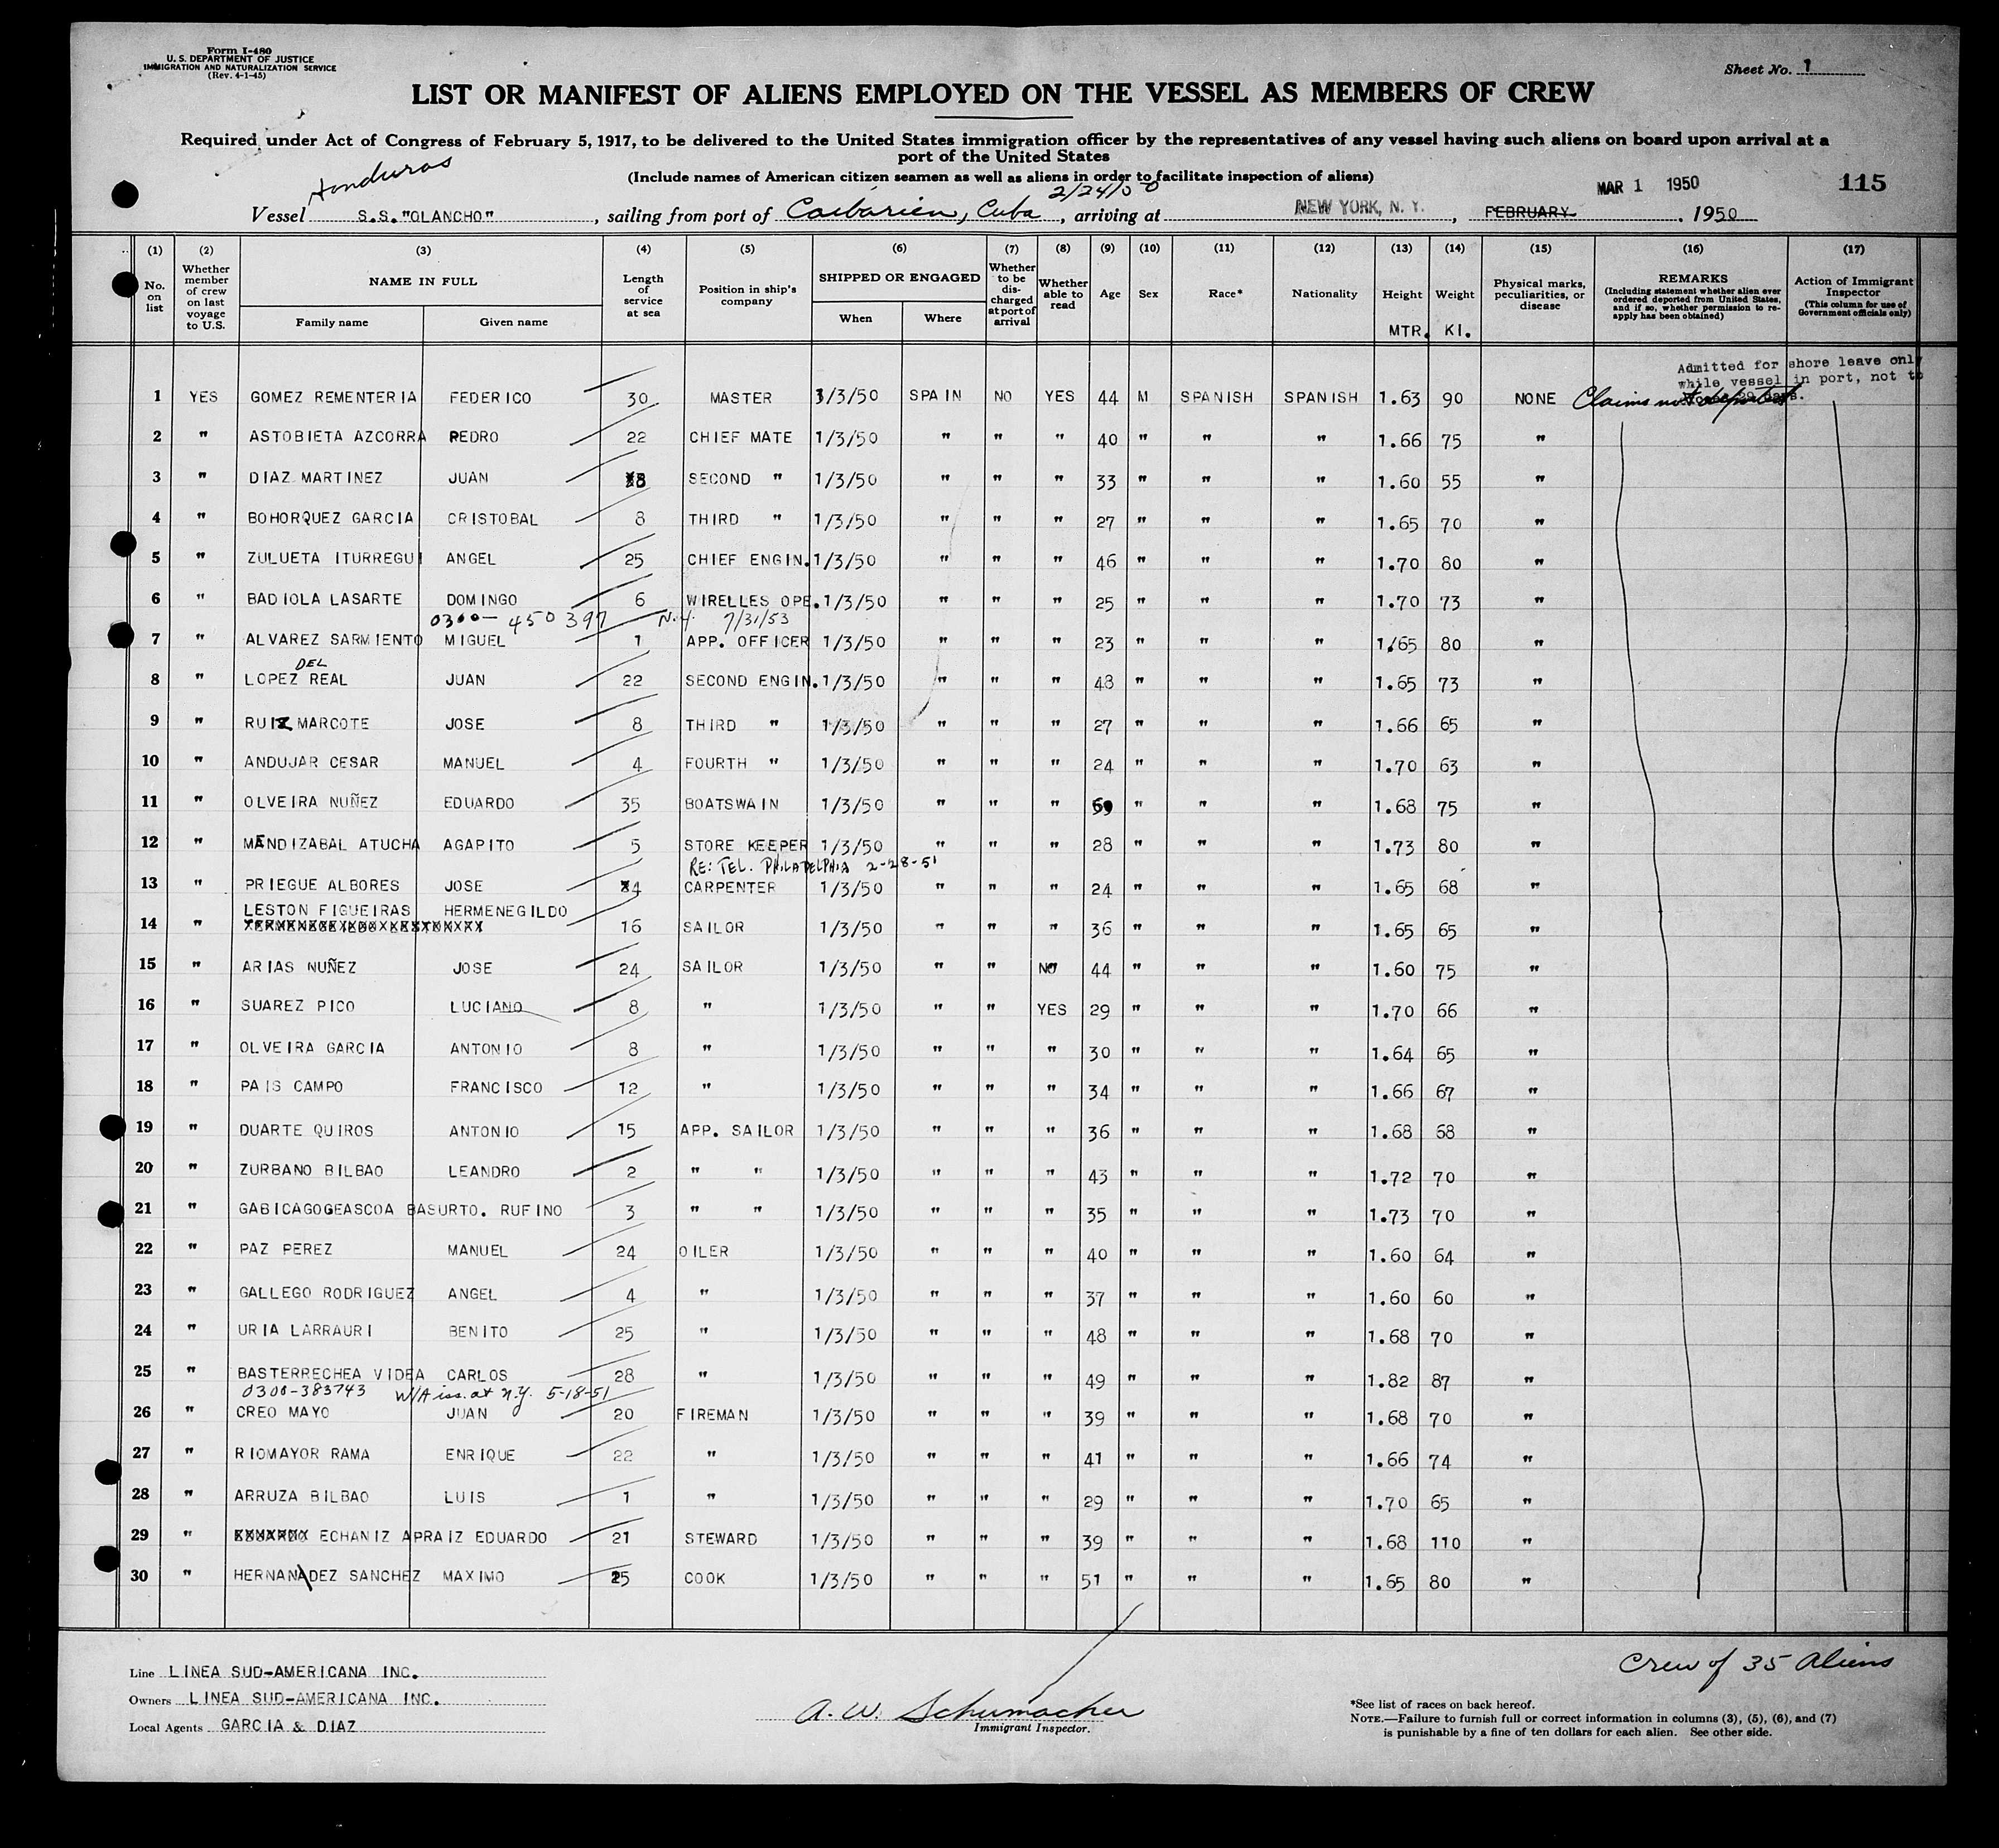 Form I-480
U. S. DEPARTMENT OF JUSTICE
IMMIGRATION AND NATURALIZATION SERVICE
(Rev. 4-1-45)
Sheet No. 1
LIST OR MANIFEST OF ALIENS EMPLOYED ON THE VESSEL AS MEMBERS OF CREW
Required under Act of Congress of February 5, 1917, to be delivered to the United States immigration officer by the representatives of any vessel having such aliens on board upon arrival at a
port of the United States
(Include names of American citizen seamen as well as aliens in order to facilitate inspection of aliens)
Honduras
2/24/50
MAR 1 1950
115
Vessel S.S. "OLANCHO", sailing from port of Caibarien, Cuba, arriving at NEW YORK, N. Y., FEBRUARY, 1950
(1) (2) (3) (4) (5) (6) (7) (8) (9) (10) (11) (12) (13) (14) (15) (16) (17)
No. on list
Whether member of crew on last voyage to U.S.
NAME IN FULL
Family name Given name
Length of service at sea
Position in ship's company
SHIPPED OR ENGAGED
When Where
Whether to be discharged at port of arrival
Whether able to read
Age
Sex
Race*
Nationality
Height MTR.
Weight KI.
Physical marks, peculiarities, or disease
REMARKS
(Including statement whether alien ever ordered deported from United States, and if so, whether permission to re-apply has been obtained)
Action of Immigrant Inspector
(This column for use of Government officials only)
Admitted for shore leave only
while vessel in port, not to
1 YES GOMEZ REMENTERIA FEDERICO 30 MASTER 1/3/50 SPAIN NO YES 44 M SPANISH SPANISH 1.63 90 NONE Claims not deported
2 " ASTOBIETA AZCORRA PEDRO 22 CHIEF MATE 1/3/50 " " " 40 " " " 1.66 75 "
3 " DIAZ MARTINEZ JUAN 8 SECOND " 1/3/50 " " " 33 " " " 1.60 55 "
4 " BOHORQUEZ GARCIA CRISTOBAL 8 THIRD " 1/3/50 " " " 27 " " " 1.65 70 "
5 " ZULUETA ITURREGUI ANGEL 25 CHIEF ENGIN. 1/3/50 " " " 46 " " " 1.70 80 "
6 " BADIOLA LASARTE DOMINGO 6 WIRELLES OPE. 1/3/50 " " " 25 " " " 1.70 73 "
0300-450397 N.Y. 7/31/53
7 " ALVAREZ SARMIENTO MIGUEL 1 APP. OFFICER 1/3/50 " " " 23 " " " 1/65 80 "
DEL
8 " LOPEZ REAL JUAN 22 SECOND ENGIN. 1/3/50 " " " 48 " " " 1.65 73 "
9 " RUIZ MARCOTE JOSE 8 THIRD " 1/3/50 " " " 27 " " " 1.66 65 "
10 " ANDUJAR CESAR MANUEL 4 FOURTH " 1/3/50 " " " 24 " " " 1.70 63 "
11 " OLVEIRA NUÑEZ EDUARDO 35 BOATSWAIN 1/3/50 " " " " " " 1.68 75 "
12 " MENDIZABAL ATUCHA AGAPITO 5 STORE KEEPER 1/3/50 " " " 28 " " " 1.73 80 "
RE: TEL. PHILADELPHIA 2-28-51
13 " PRIEGUE ALBORES JOSE 4 CARPENTER 1/3/50 " " " 24 " " " 1.65 68 "
LESTON FIGUEIRAS HERMENEGILDO
14 " 16 SAILOR 1/3/50 " " " 36 " " " 1.65 65 "
15 " ARIAS NUÑEZ JOSE 24 SAILOR 1/3/50 " " NO 44 " " " 1.60 75 "
16 " SUAREZ PICO LUCIANO 8 " 1/3/50 " " YES 29 " " " 1.70 66 "
17 " OLVEIRA GARCIA ANTONIO 8 " 1/3/50 " " " 30 " " " 1.64 65 "
18 " PAIS CAMPO FRANCISCO 12 " 1/3/50 " " " 34 " " " 1.66 67 "
19 " DUARTE QUIROS ANTONIO 15 APP. SAILOR 1/3/50 " " " 36 " " " 1.68 68 "
20 " ZURBANO BILBAO LEANDRO 2 " " 1/3/50 " " " 43 " " " 1.72 70 "
21 " GABICAGOGEASCOA BASURTO. RUFINO 3 " " 1/3/50 " " " 35 " " " 1.73 70 "
22 " PAZ PEREZ MANUEL 24 OILER 1/3/50 " " " 40 " " " 1.60 64 "
23 " GALLEGO RODRIGUEZ ANGEL 4 " 1/3/50 " " " 37 " " " 1.60 60 "
24 " URIA LARRAURI BENITO 25 " 1/3/50 " " " 48 " " " 1.68 70 "
25 " BASTERRECHEA VIDEA CARLOS 28 " 1/3/50 " " " 49 " " " 1.82 87 "
0300-383743 W/A iss. at N.Y. 5-18-51
26 " CREO MAYO JUAN 20 FIREMAN 1/3/50 " " " 39 " " " 1.68 70 "
27 " RIOMAYOR RAMA ENRIQUE 22 " 1/3/50 " " " 41 " " " 1.66 74 "
28 " ARRUZA BILBAO LUIS 1 " 1/3/50 " " " 29 " " " 1.70 65 "
29 " ECHANIZ APRAIZ EDUARDO 21 STEWARD 1/3/50 " " " 39 " " " 1.68 110 "
30 " HERNANDEZ SANCHEZ MAXIMO 25 COOK 1/3/50 " " " 51 " " " 1.65 80 "
Crew of 35 Aliens
Line LINEA SUD-AMERICANA INC.
Owners LINEA SUD-AMERICANA INC.
Local Agents GARCIA & DIAZ
A. W. Schumacher
Immigrant Inspector.
*See list of races on back hereof.
NOTE.—Failure to furnish full or correct information in columns (3), (5), (6), and (7)
is punishable by a fine of ten dollars for each alien. See other side.